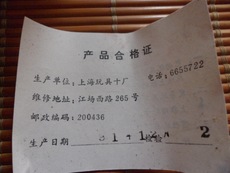 产品合格证
生产单位：上海玩具十厂 电话：6655722
维修地址：江场西路265号
邮政编码：200436
生产日期 检验 2